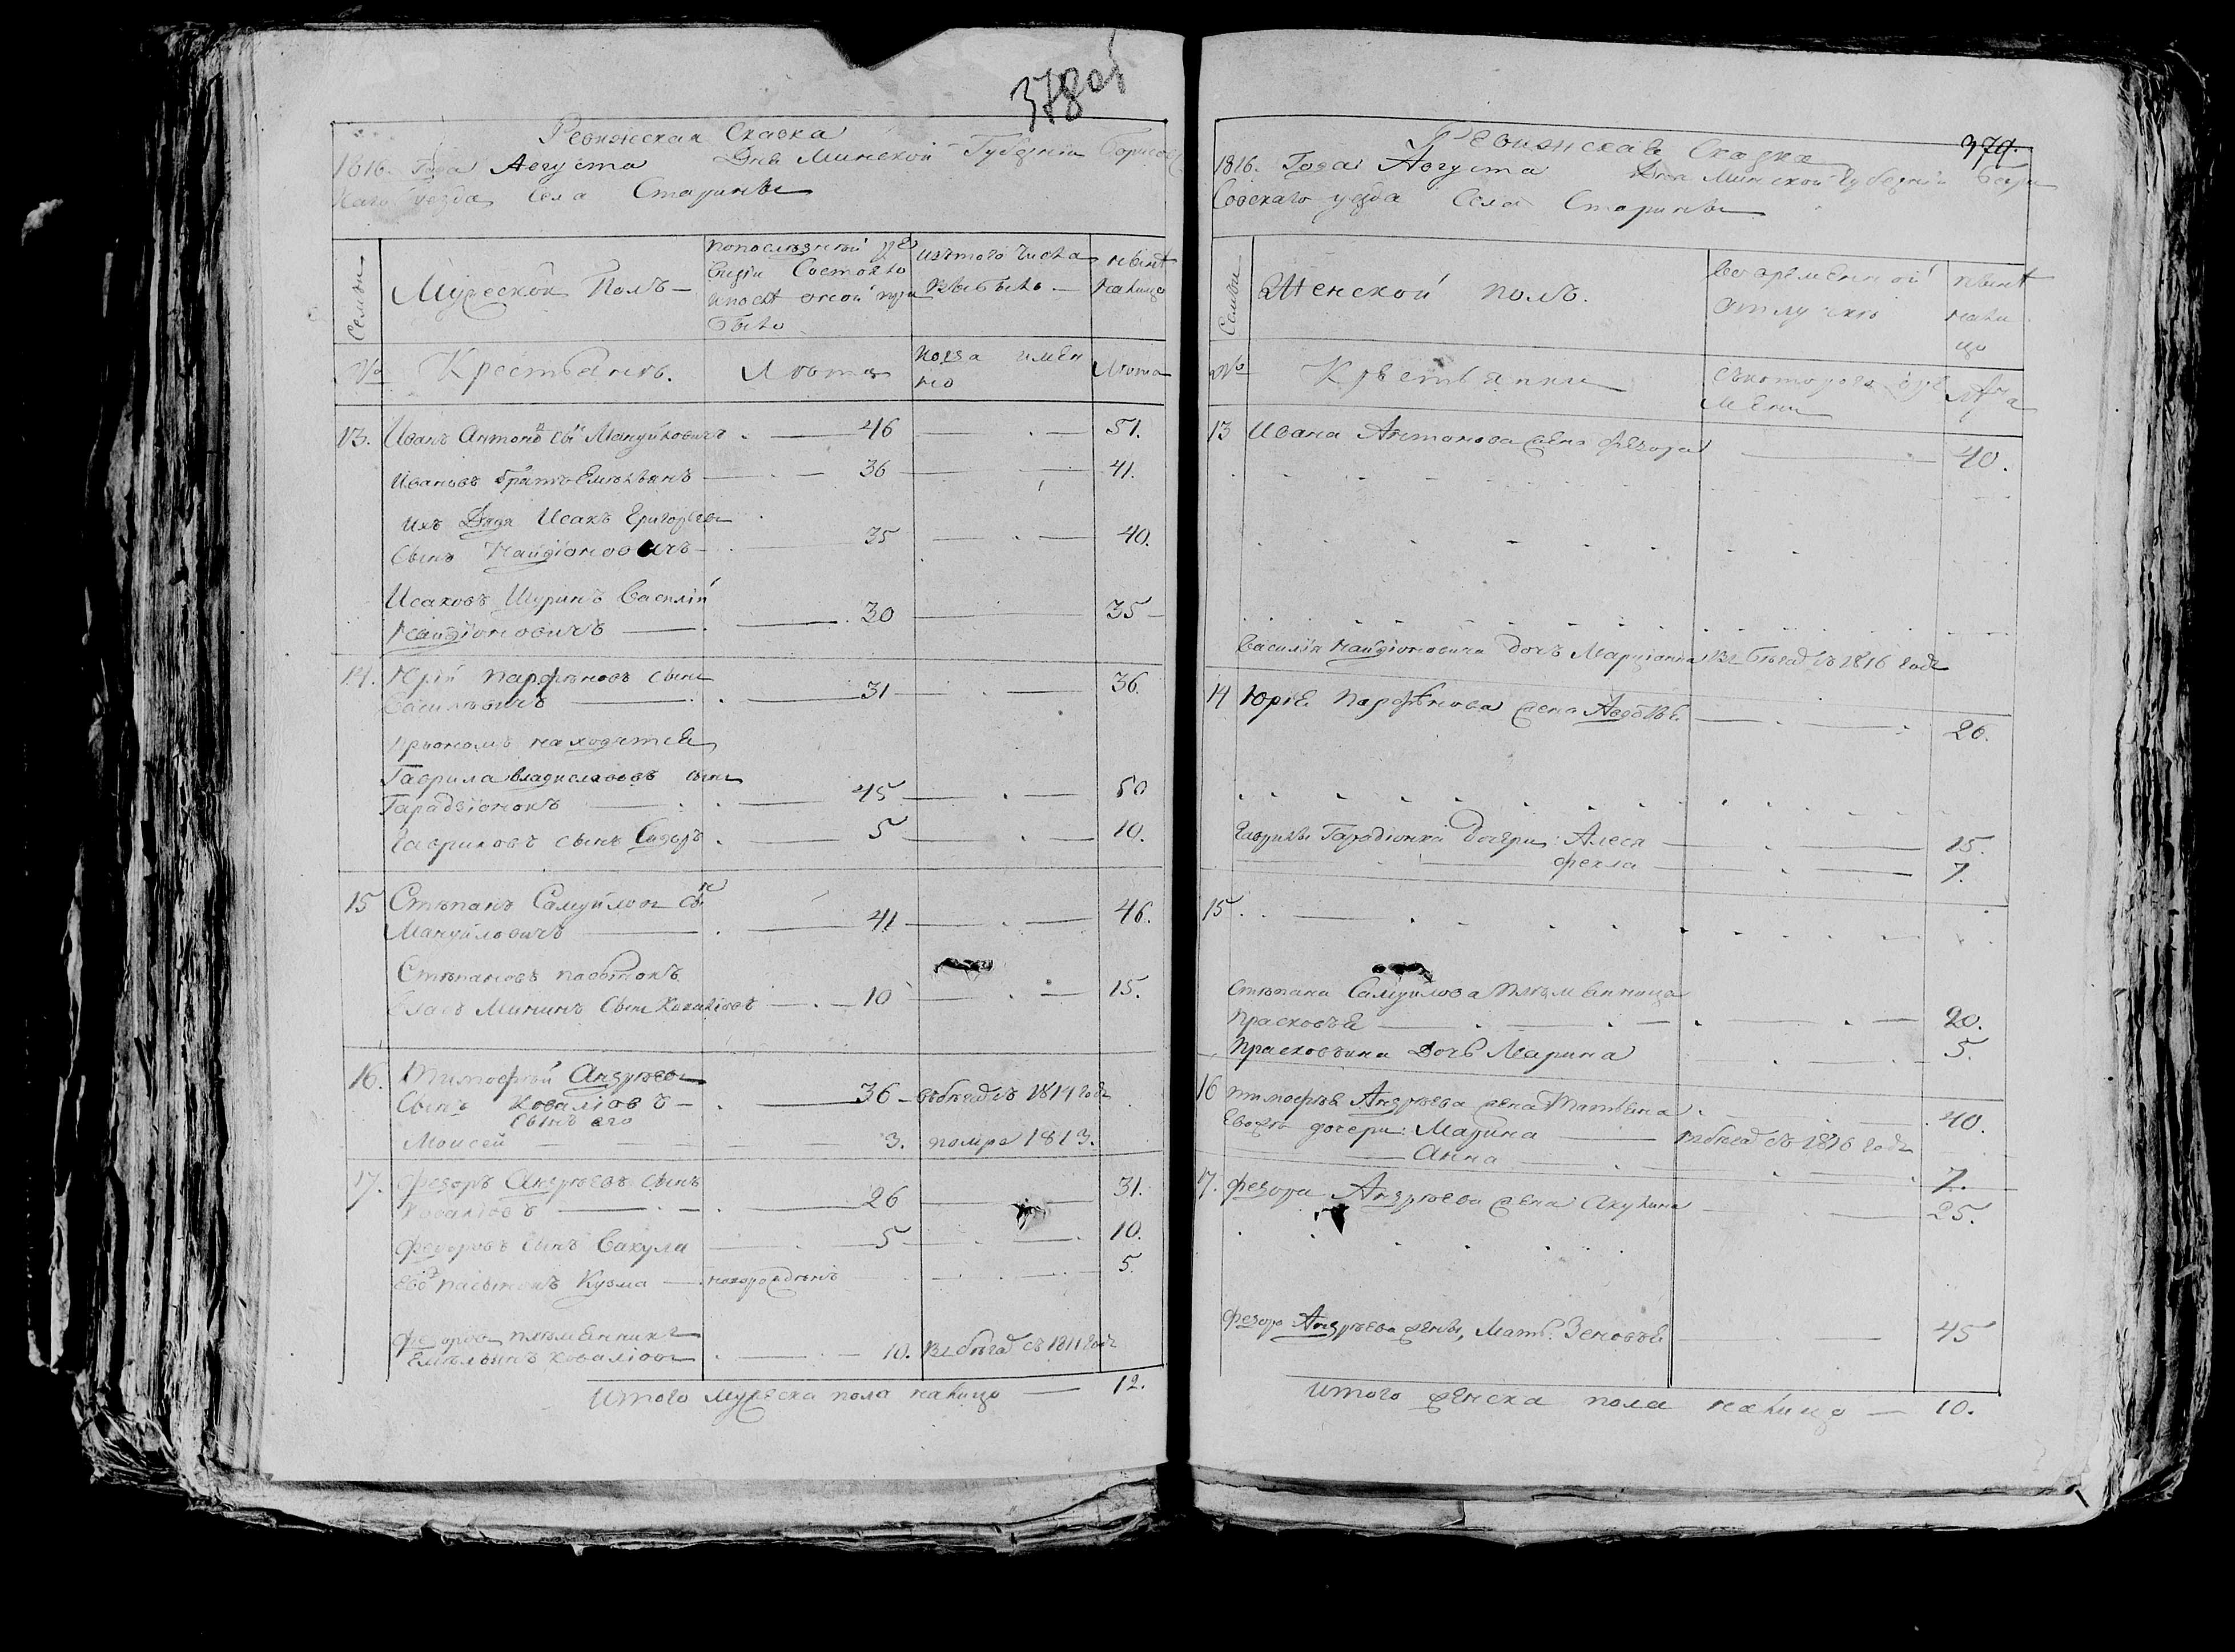 378 об
Ревижская Сказка
1816. Года Августа Дня Минской Губернии Борисов
скаго уезда Села Старинки
Семьи
Мужеской Полъ —
попоследней ре
визии Состояло
ипосле оной при
было
изътого числа
выбыло —
ныне
налицо
№ Крестьянъ. Лета
когда имен
но
Лета
13. Иванъ Антоновъ сынъ Мануйловичъ — 46 — 51.
Ивановъ братъ Емельянъ — 36 — 41.
ихъ Дядя Исакъ Григорьевъ
сынъ Найдіоновичъ — 35 — 40.
Исаковъ Шуринъ Василій
Найдіоновичъ — 30 — 35 —
14. Юрій парфеновъ сынъ
Василевичъ — 31 — 36.
приономъ находятся
Гаврила владиславовъ сынъ
Гарадзіонокъ — 45 — 50
Гавриловъ сынъ Сидоръ — 5 — 10.
15 Степанъ Самуйловъ сынъ
Мануйловичъ — 41 — 46.
Степановъ пасынокъ
Власъ Мининъ сынъ Ковалiовъ — 10 — 15.
16. Тимофей Андреевъ
Сынъ Коваліовъ — 36 — вбегахъ 1814 года
Сынъ его
Моисей — 3. померъ 1813.
17. Федоръ Андреевъ сынъ
Коваліовъ — 26 — 31.
Федоровъ сынъ Вакула — 5 — 10.
его пасынокъ Кузма — новорожденъ — 5.
Федоровъ племенникъ
Емельянъ Коваліовъ — 10. въ бегах съ 1811 года
Итого мужеска пола налицо — 12.
379.
Ревижская Сказка
1816. Года Августа Дня Минской Губернии Бори
совскаго уезда Села Старинки
Семьи
Женской полъ.
во временной
отлучке
ныне
нали
цо
№ Крестьянки
съкотораго вре
мени
Лета
13 Ивана Антонова жена Федора — 40.
Василія Найдіоновича дочь Марціанна въ бегах съ 1816 года
14 Юрія Парфенова жена Авдотья — 26.
Гаврилы Гарадіонка дочери: Алеся — 15.
Фекла — 7.
15.
Степана Самуйлова племенница
Прасковья — 20.
Прасковьина дочь Марина — 5.
16 тимофея Андреева жена Татьяна — 40.
Евоже дочери: Марина — въ бегах съ 1816 года
— Анна — 7.
17. Федора Андреева жена Акулина — 25.
Федора Андреева жены, Мать Зеновья — 45
Итого женска пола налицо — 10.